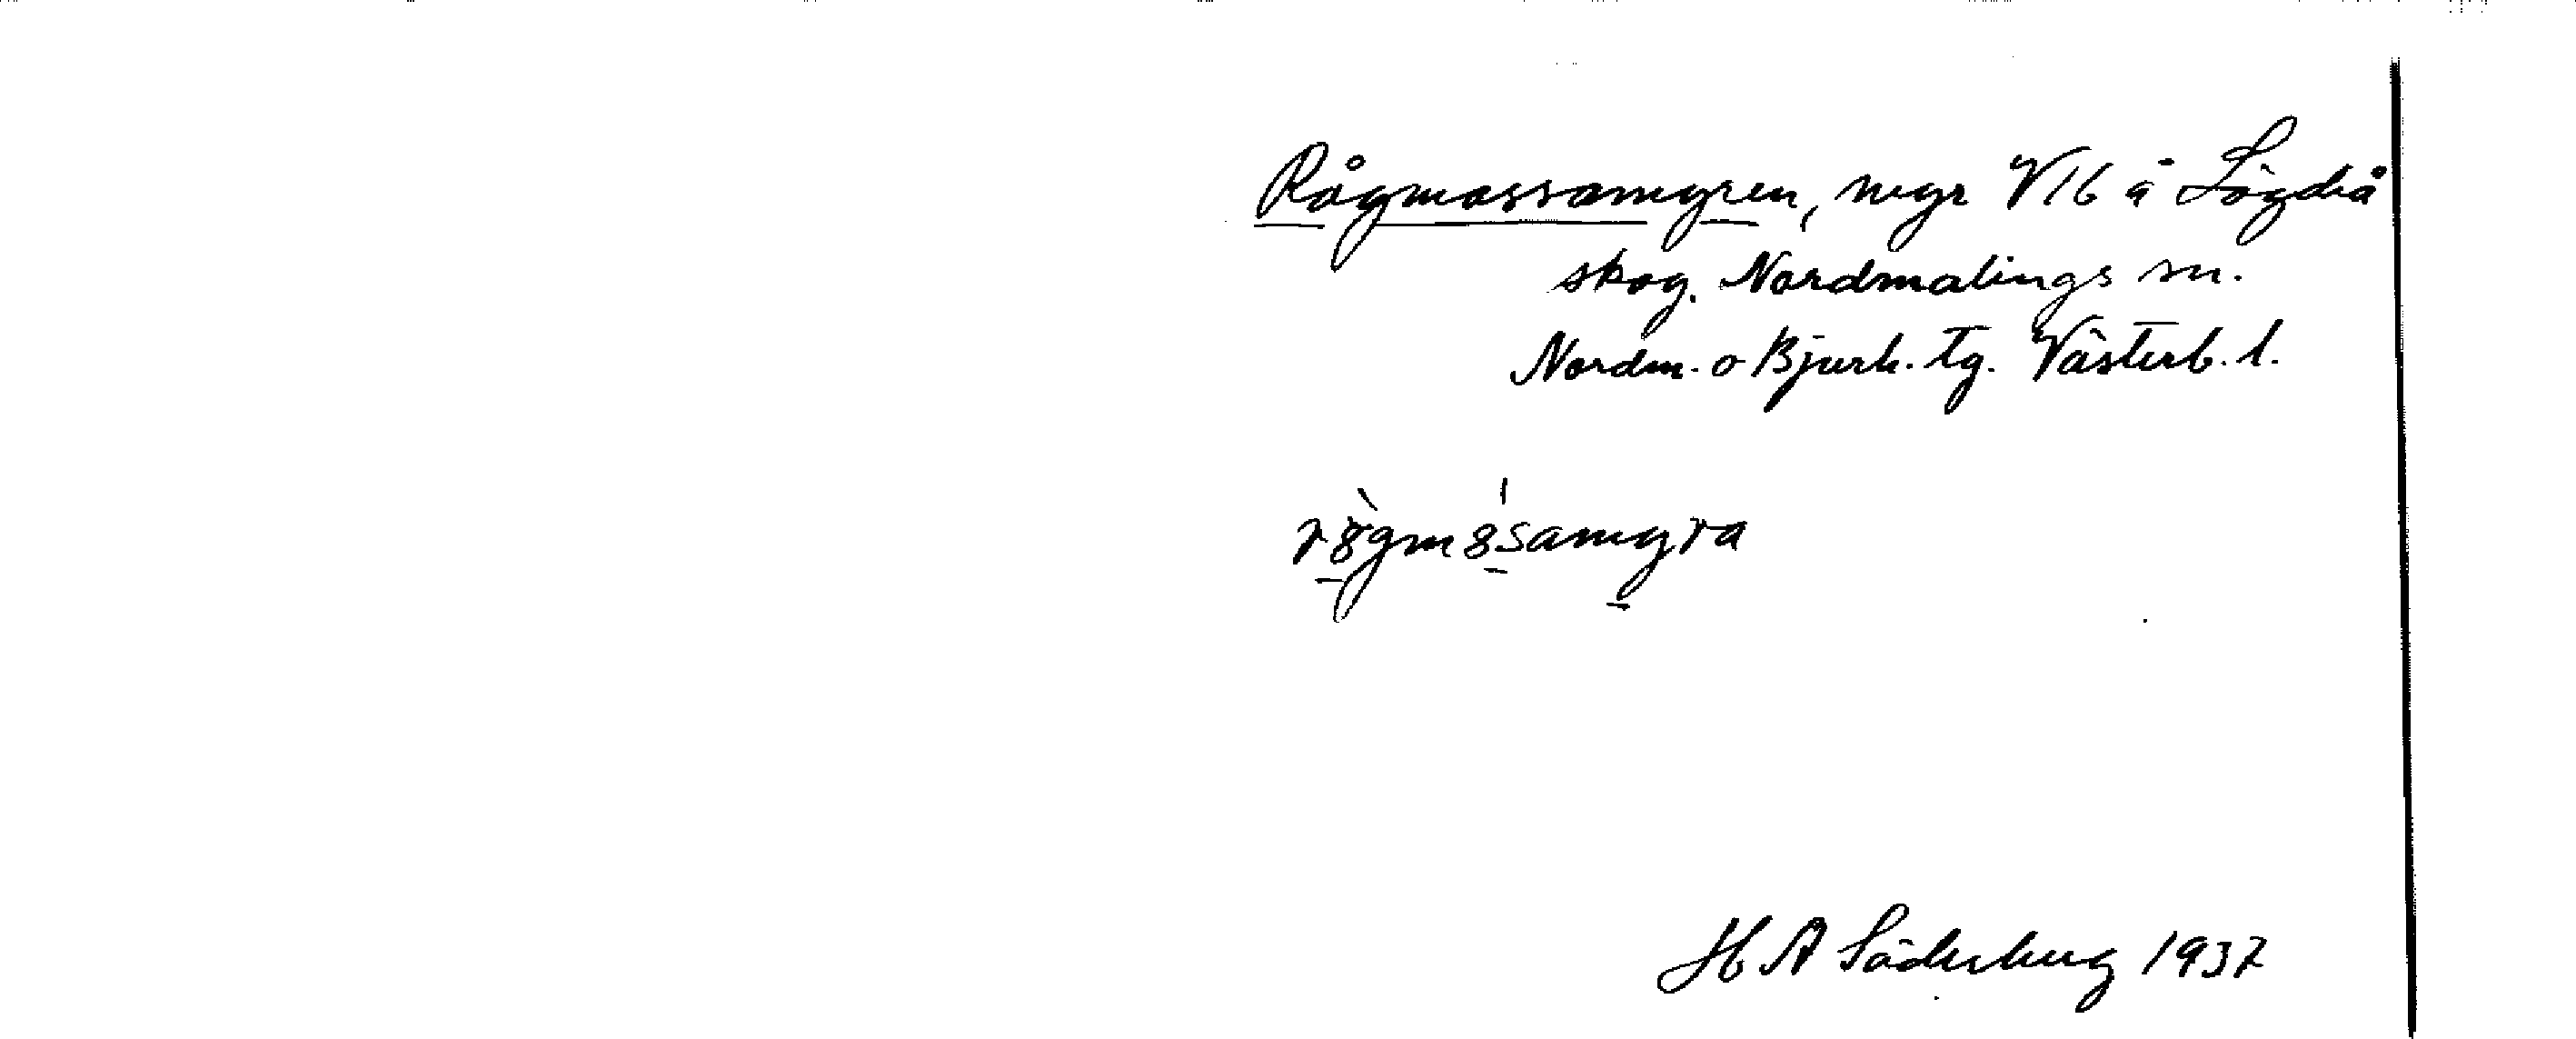 Rågmossamyren, myr V 16 å Lögdeå
skog. Nordmalings sn.
Nordm. o Bjurh. tg. Västerb. l.
H A Söderberg 1937